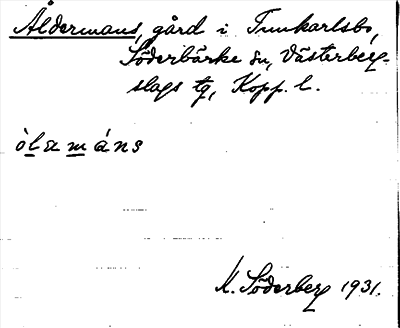 Åldermans, gård i Tunkarlsbo,
Söderbärke sn, Västerberg-
slags tg, Kopp. l.
òlamáns
K. Söderberg 1931.